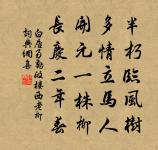 半朽臨風樹
多情立馬人
開元一株柳
長慶二年春
白居易勤政樓西老柳
詞典網集